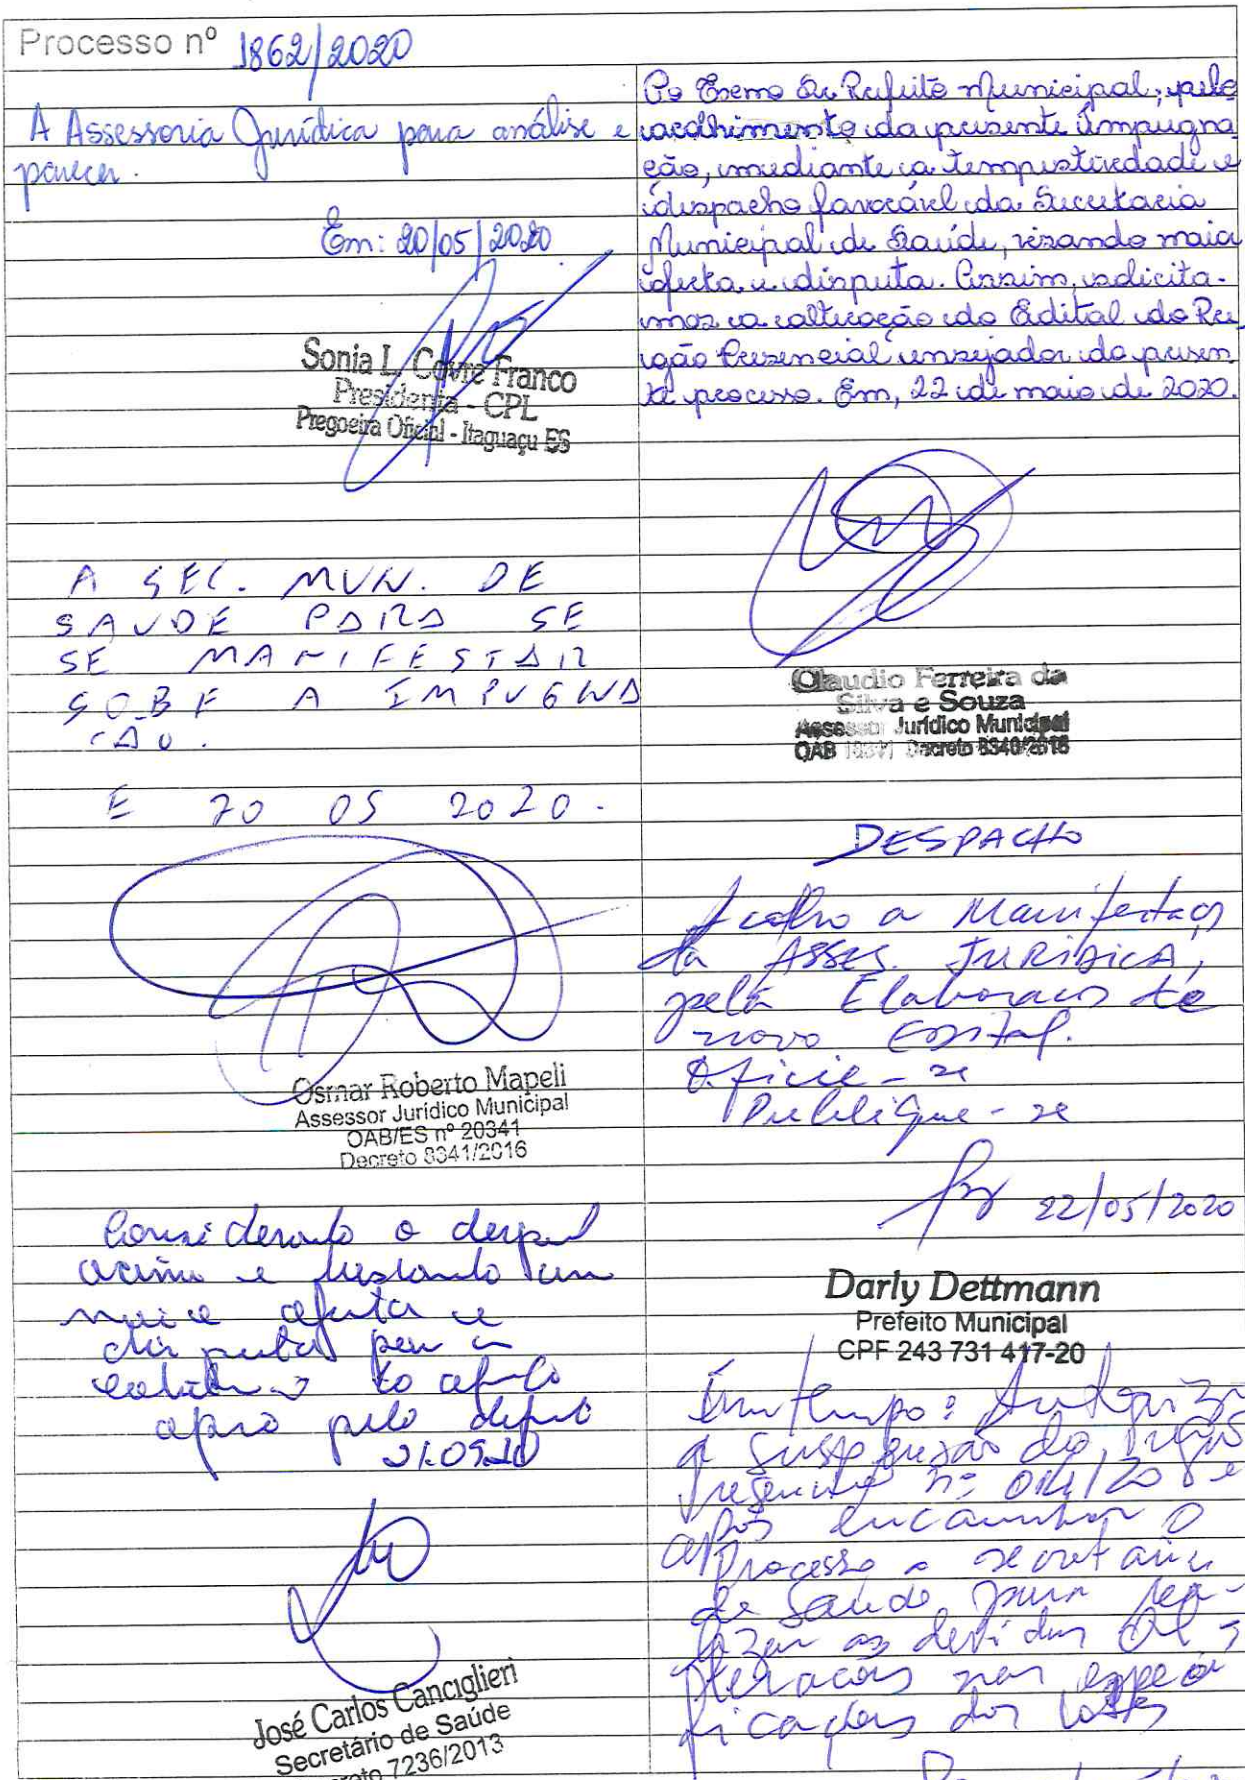 Processo nº 1862/2020
A Assessoria Jurídica para análise e
parecer.
Em: 20/05/2020
Sonia L. Covre Franco
Presidenta - CPL
Pregoeira Oficial - Itaguaçu ES
A SEC. MUN. DE
SAUDE PARA SE
SE MANIFESTAR
SOBE A IMPUGNA
ÇÃO.
E 20 05 2020.
Osmar Roberto Mapeli
Assessor Jurídico Municipal
OAB/ES nº 20341
Decreto 8341/2016
Considerando o
acima e
oferta e
disputa
pelo
21.05.20
José Carlos Canciglieri
Secretário de Saúde
7236/2013
Ao Exemo Sr. Prefeito Municipal, pelo
acolhimento da presente impugna
ção, mediante a tempestividade e
despacho favorável da Secretaria
Municipal de Saúde, visando maior
oferta e disputa. Assim, solicita-
mos a alteração do Edital do Pre
gão Presencial ensejador do presen
te processo. Em, 22 de maio de 2020.
Claudio Ferreira da
Silva e Souza
Assessor Jurídico Municipal
OAB Decreto 8340/2016
DESPACHO
Acolho a Manifestação
da ASSES. JURIDICA,
pela Elaboracao de
novo Edital.
Oficie-se
Publique-se
22/05/2020
Darly Dettmann
Prefeito Municipal
CPF 243 731 417-20
Em tempo: Autorizo
a suspensão do Pregão
Presencial nº 014/20 e
após encaminhar o
Processo a secretaria
de Saúde para rea-
lizar as devidas al-
terações nas especi
ficações dos lotes